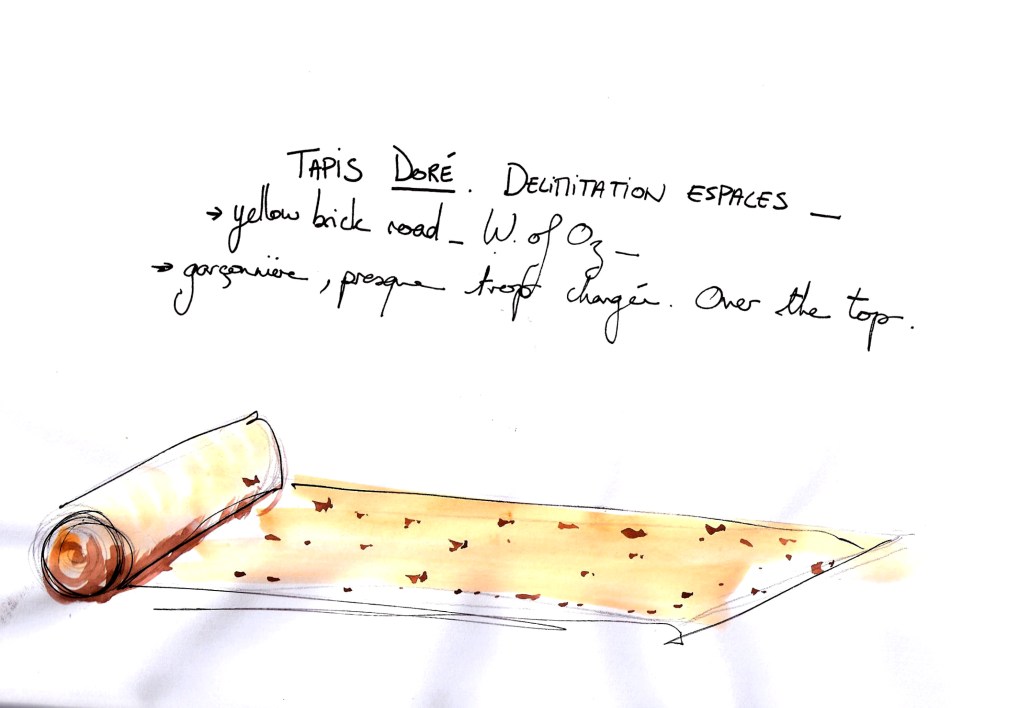 TAPIS DORÉ. DELIMITATION ESPACES _
→ yellow brick road _ W. of Oz _
→ garçonnière, presque trop chargée. Over the top.